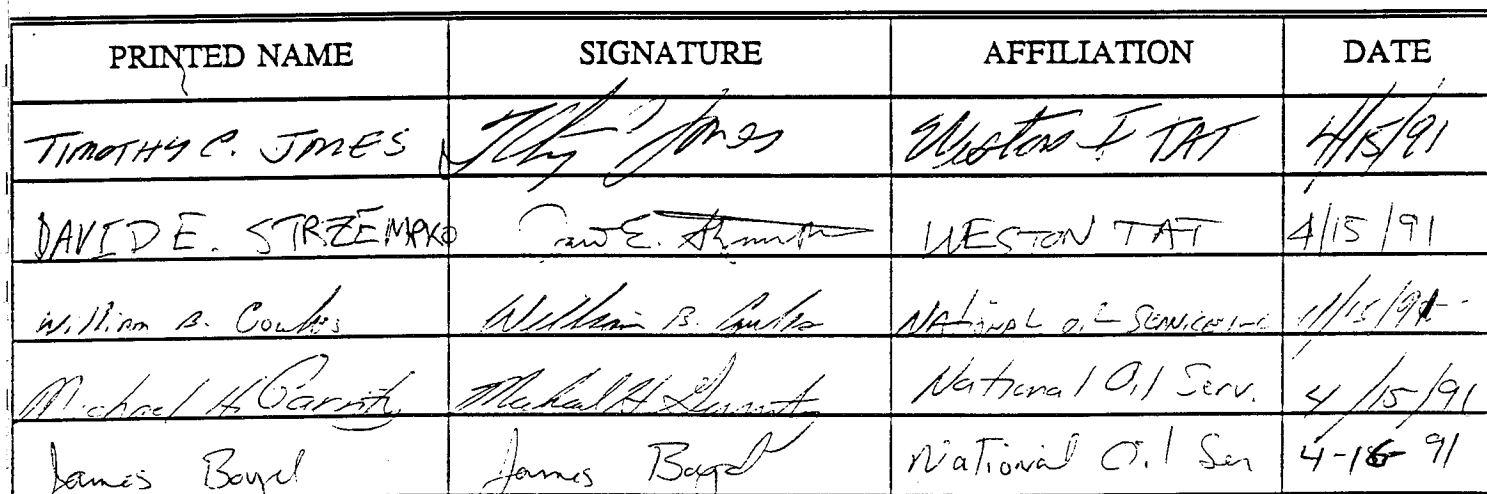 PRINTED NAME SIGNATURE AFFILIATION DATE
TIMOTHY C. JONES Jones Weston TAT 4/15/91
DAVID E. STRZEMPKO E. WESTON TAT 4/15/91
William B. William B. NATIONAL OIL SERVICE 4/15/91
Michael H. Garrity Michael H Garrity National Oil Serv. 4/15/91
James Boyd James Boyd National Oil Ser 4-16-91